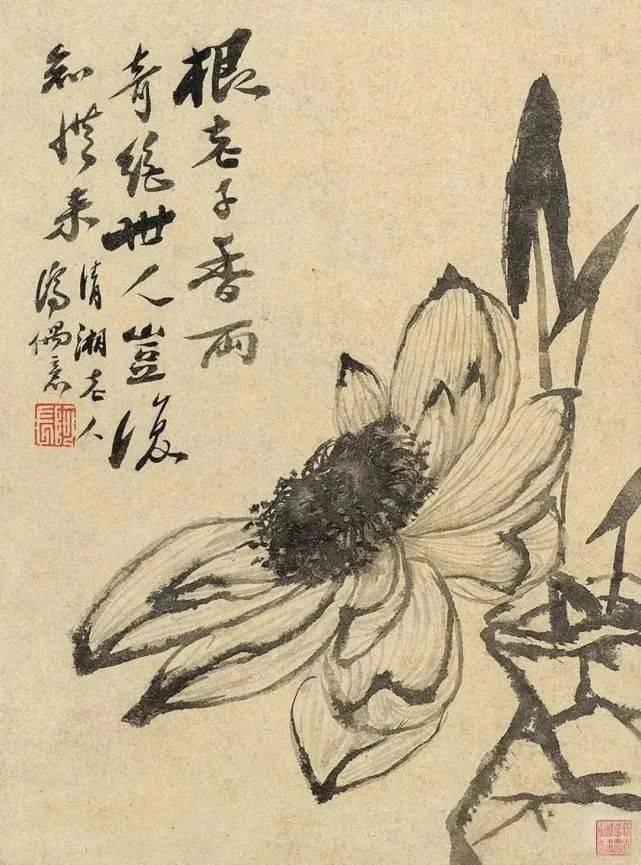 根老子香兩
奇絕世人豈復
知来
清湘老人
濟偶意
阿長